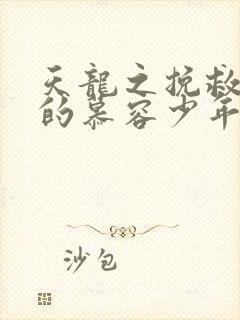 天龍之挽救
的慕容少年
沙包